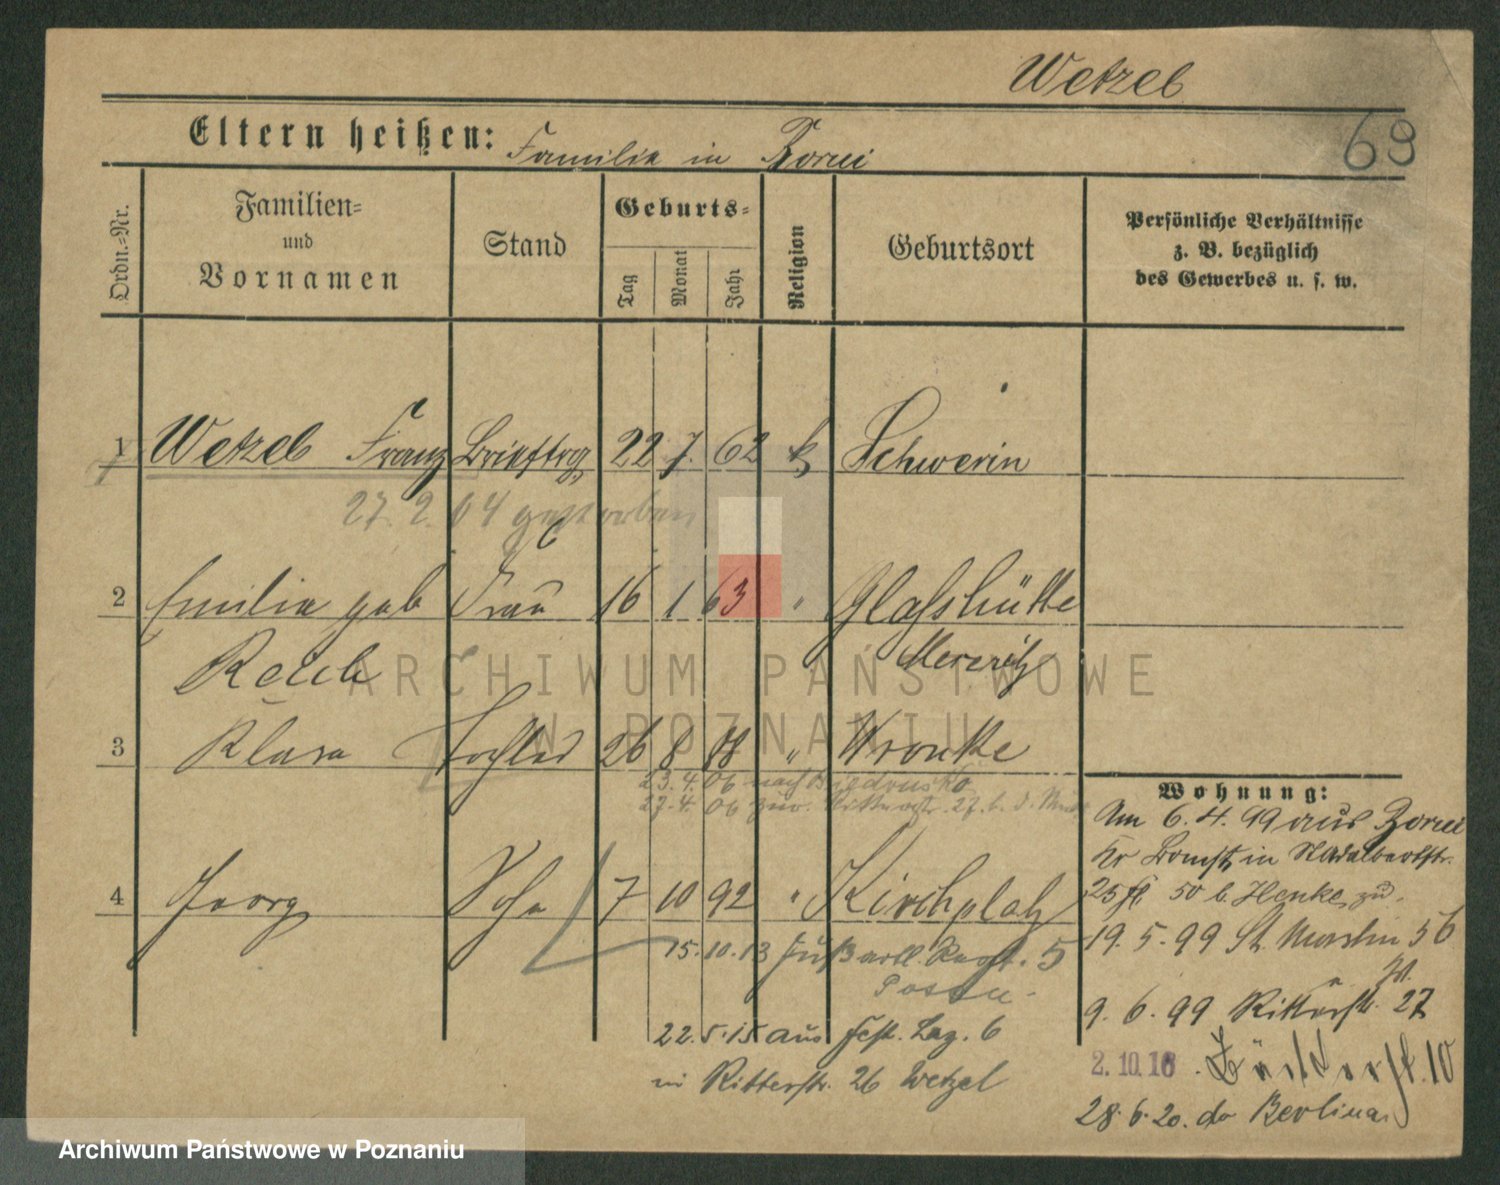 Wetzel
69
Eltern heißen: Familie in Borui
Ordn.-Nr.
Familien-
und
Vornamen
Stand
Geburts-
Tag
Monat
Jahr
Religion
Geburtsort
Persönliche Verhältnisse
z. B. bezüglich
des Gewerbes u. s. w.
1 Wetzel Franz Brieftrg. 22 7. 62 k Schwerin
27. 2. 04 gestorben
2 Emilie geb Frau 16 1 63 " Glashütte
Meseritz
3 Klara Tochter 26 8 88 " Wronke
23. 4. 06 nach Biedrusko
27. 4. 06 zur. Ritterstr. 27. b. d. Mutter
4 Georg Sohn 7 10 92 " Kirchplatz
15. 10. 13 Fußartl. Regt. 5
Posen
22. 5. 15 aus Fest. Laz. 6
in Ritterstr. 26 Wetzel
Wohnung:
Am 6. 4. 99 aus Borui
Kr Bomst, in St Adalbertstr.
25 50 b. Henke zu.
19. 5. 99 St. Martin 56
9. 6. 99 Ritterstr. 27
2. 10. 18
28. 6. 20. do Berlina
ARCHIWUM PAŃSTWOWE
W POZNANIU
Archiwum Państwowe w Poznaniu